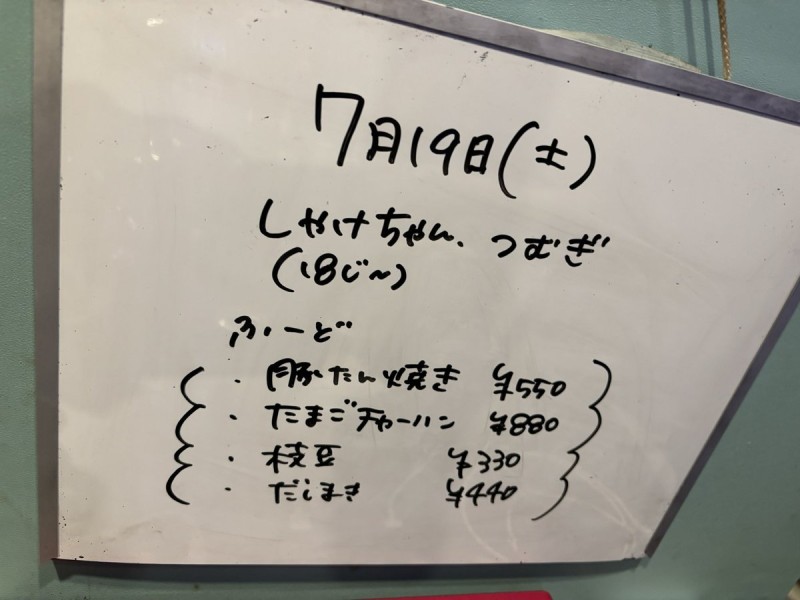 7月19日(土)
しゃけちゃん、つむぎ
(18じ〜)
ふーど
・豚たん焼き ¥550
・たまごチャーハン ¥880
・枝豆 ¥330
・だしまき ¥440